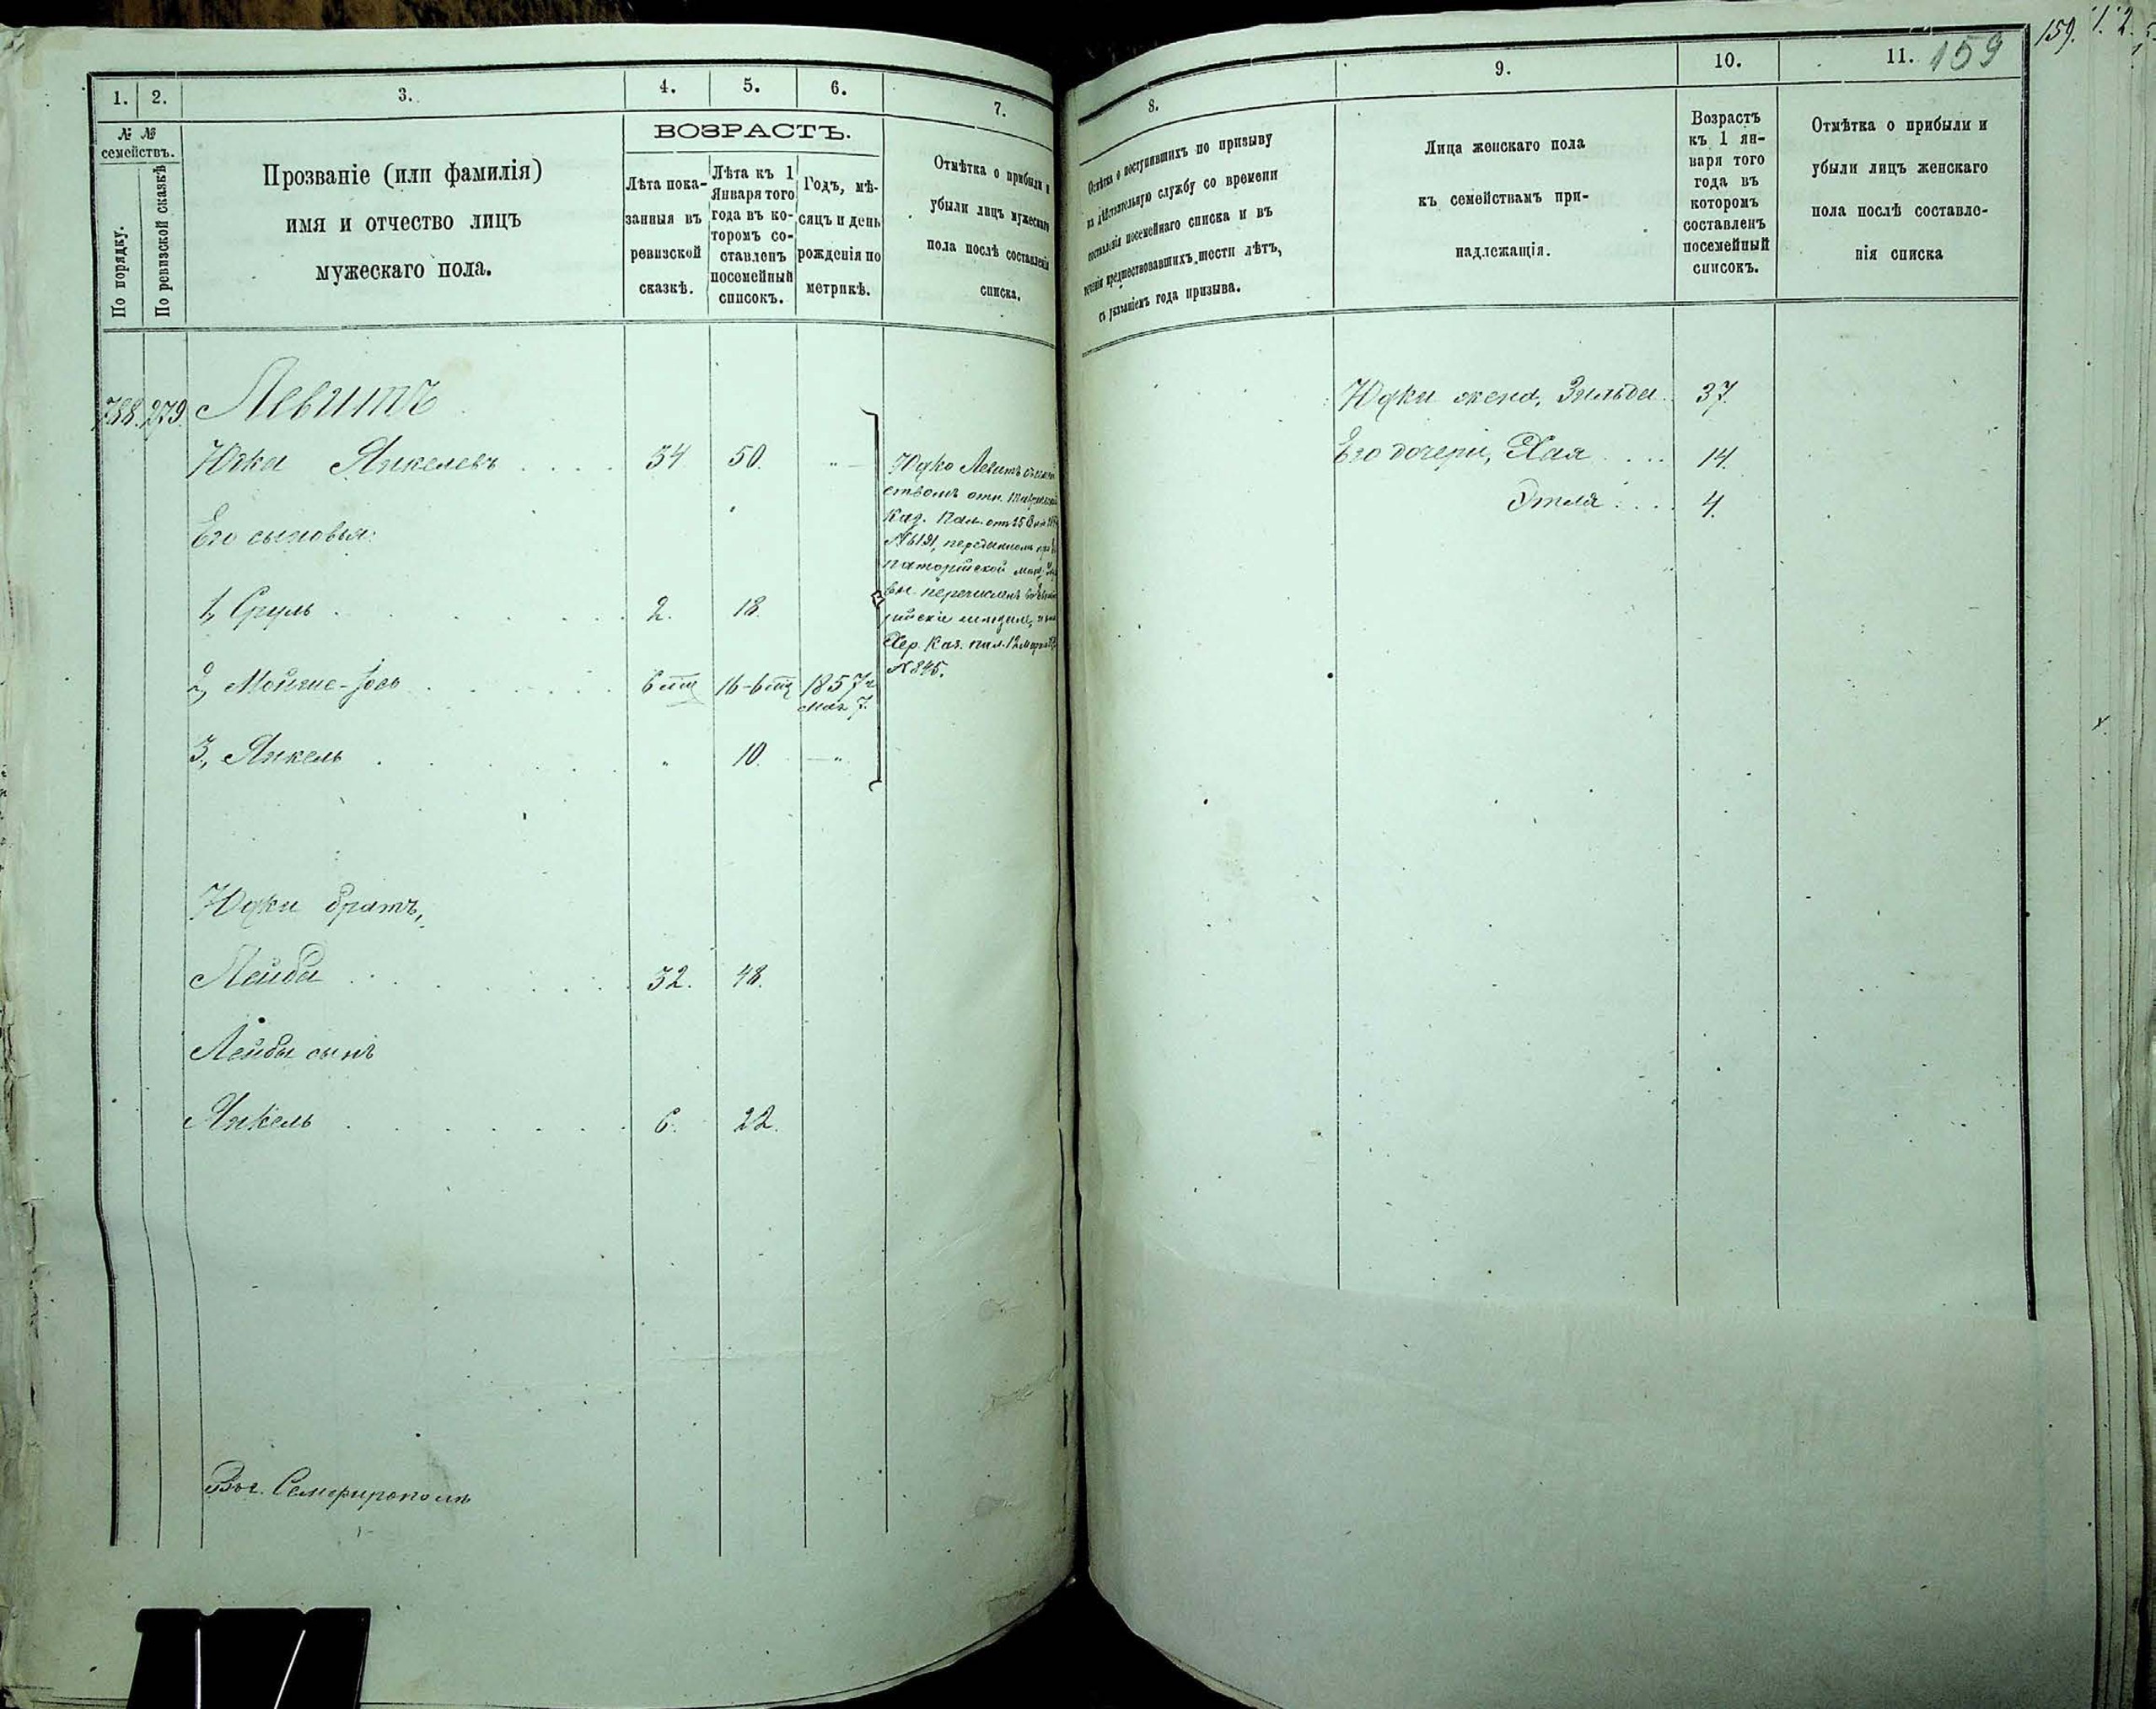 1. 2. 3. 4. 5. 6. 7.
№ №
семействъ.
По порядку.
По ревизской сказкѣ
Прозваніе (или фамилія)
имя и отчество лицъ
мужескаго пола.
ВОЗРАСТЪ.
Лѣта пока-
занныя въ
ревизской
сказкѣ.
Лѣта къ 1
Января того
года въ ко-
торомъ со-
ставленъ
посемейный
списокъ.
Годъ, мѣ-
сяцъ и день
рожденія по
метрикѣ.
Отмѣтка о прибыли и
убыли лицъ мужескаго
пола послѣ составленія
списка.
279. Левитъ
Юдка Янкелевъ . . . . 34 50. " —
Его сыновья:
1, Сруль . . . . . . 2. 18.
2, . . . . . . 6 мц 16-6 мц 1857 г.
Мая 7.
3, Янкель . . . . . " 10. — "
Юдко Левитъ
Каз. Пал. от 25
№ 6191,
перечисленъ
Хер. Каз. пал. 12 Марта
№ 845.
Юдки братъ,
Лейба . . . . . . . 32. 48.
Лейбы сынъ
Янкель . . . . . . . 6. 22.
Въ г. Симферополѣ
8. 9. 10. 11. 159
159.
Отмѣтка о поступившихъ по призыву
на дѣйствительную службу со времени
составленія посемейнаго списка и въ
теченіи предшествовавшихъ шести лѣтъ,
съ указаніемъ года призыва.
Лица женскаго пола
къ семействамъ при-
надлежащія.
Возрастъ
къ 1 ян-
варя того
года въ
которомъ
составленъ
посемейный
списокъ.
Отмѣтка о прибыли и
убыли лицъ женскаго
пола послѣ составле-
нія списка
Юдки жена, Зельда. 37.
Его дочери, Хая . . . . 14.
Этля . . . . 4.